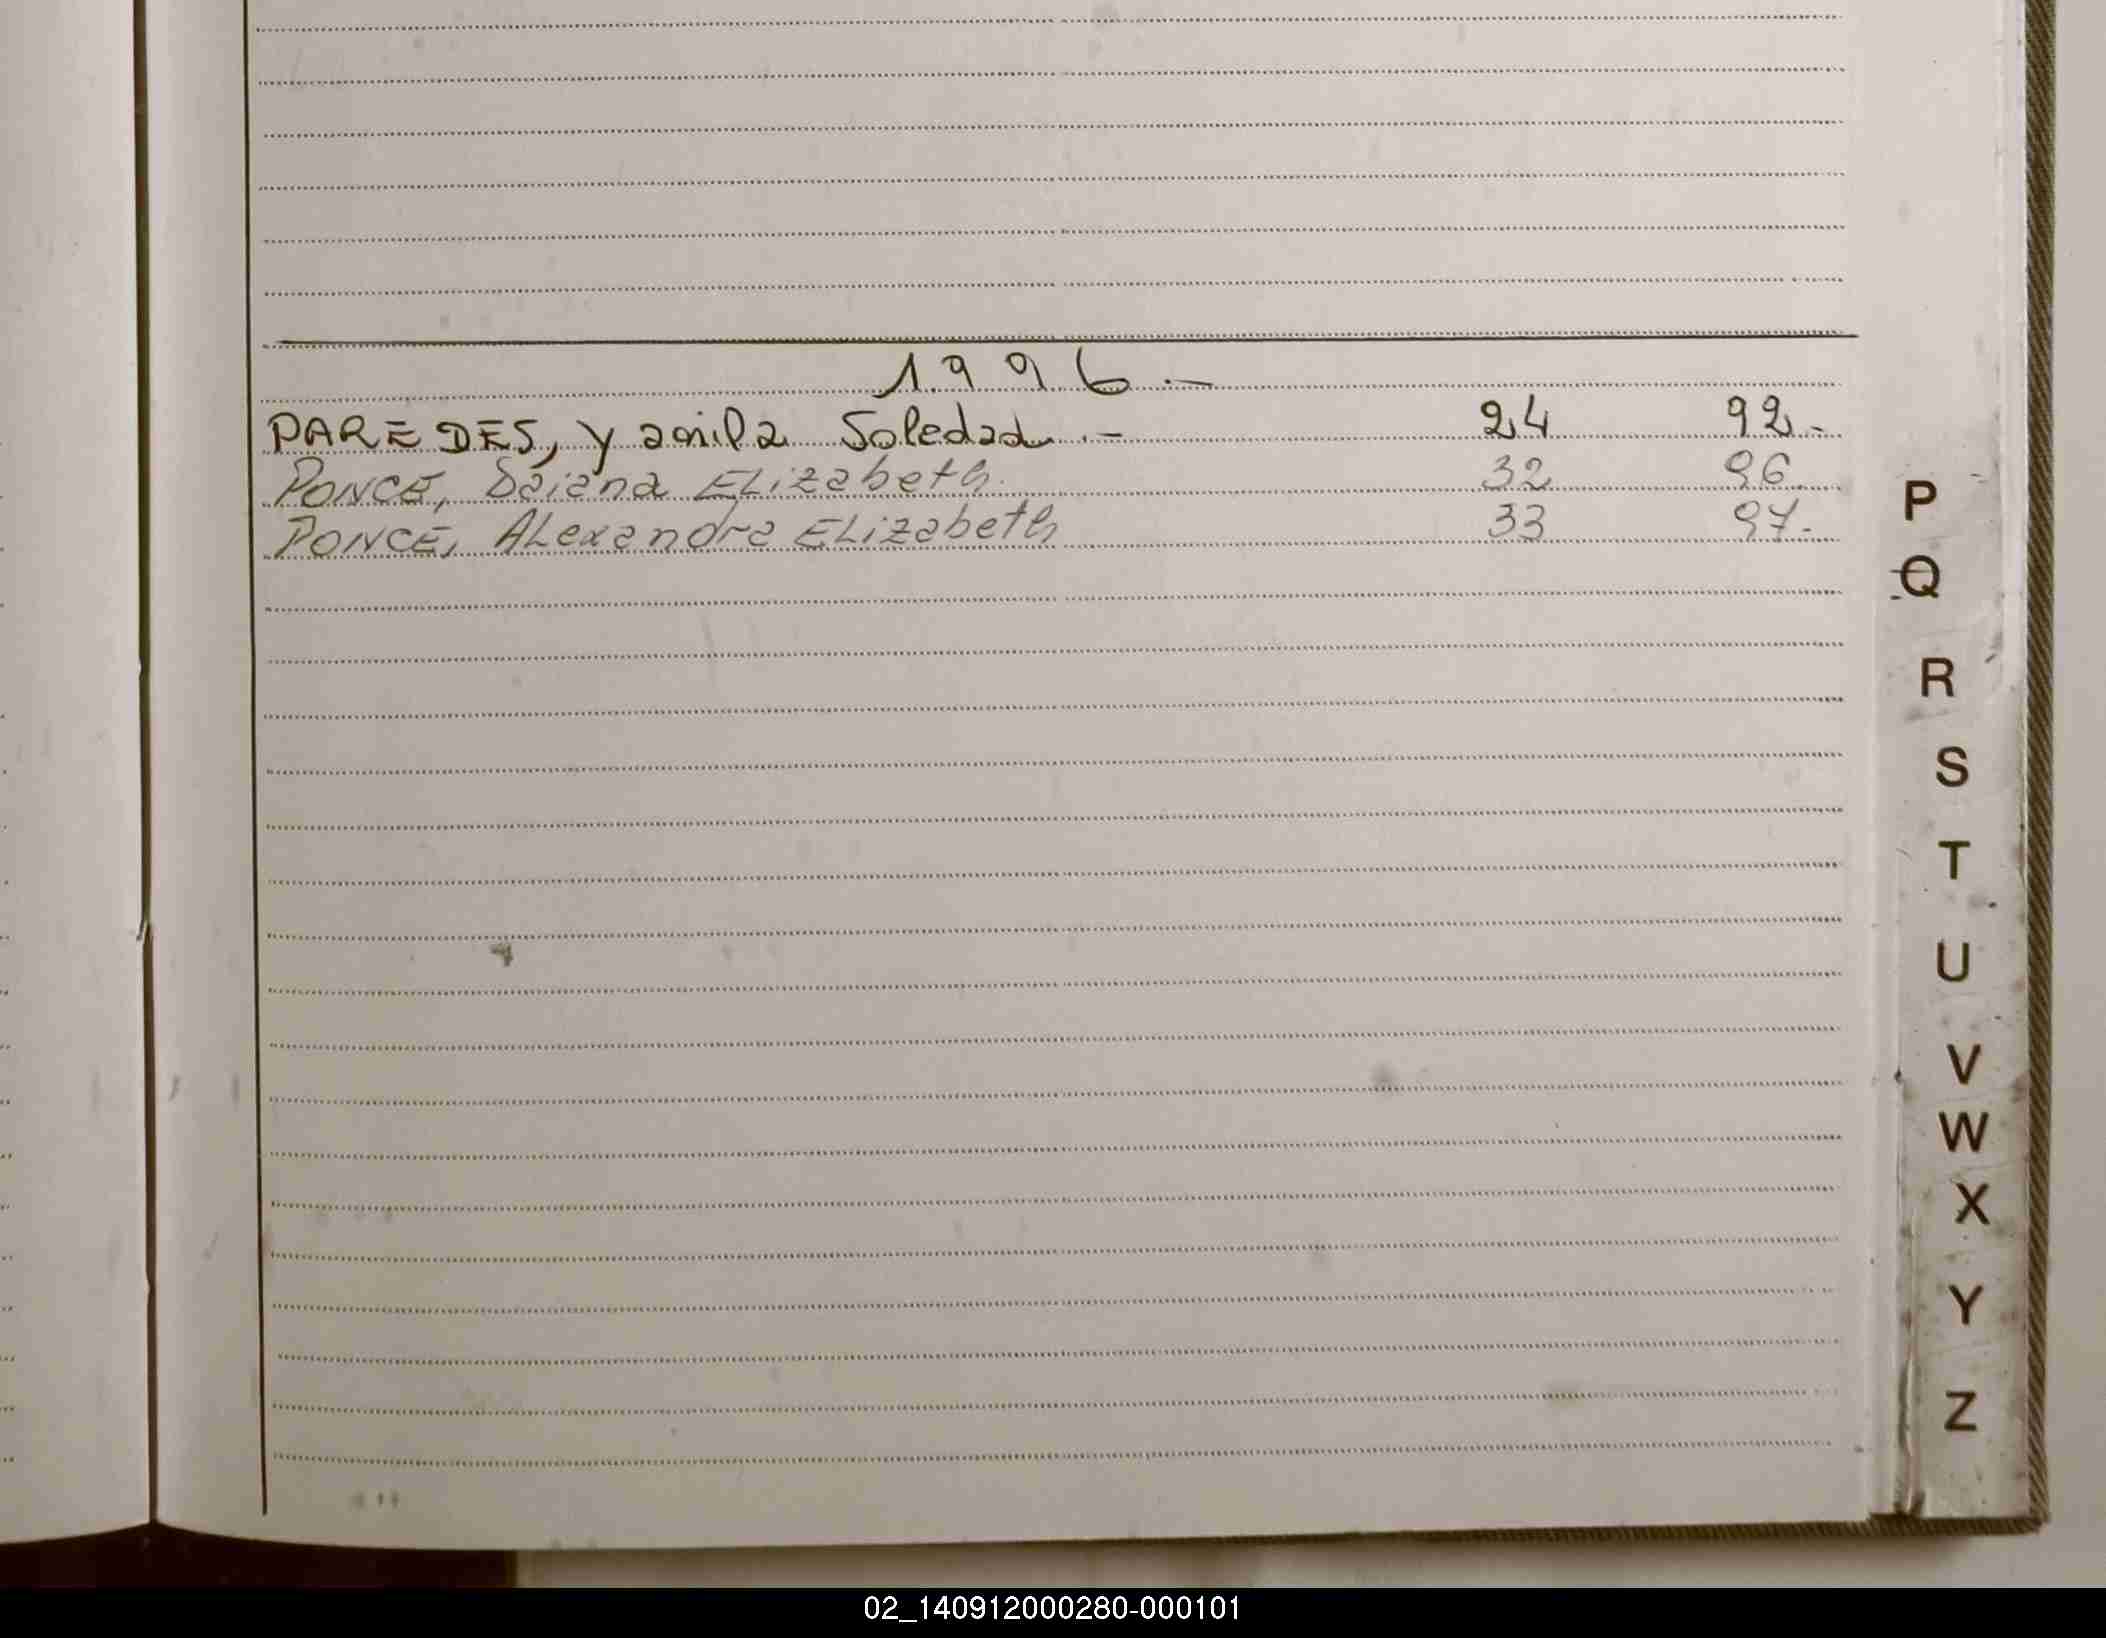 1996.-
PAREDES, Yamila Soledad.- 24 92.-
PONCE, Daiana ELizabeth. 32 96.
PONCE, ALexandra ELizabeth 33 97.-
P
Q
R
S
T
U
V
W
X
Y
Z
02_140912000280-000101